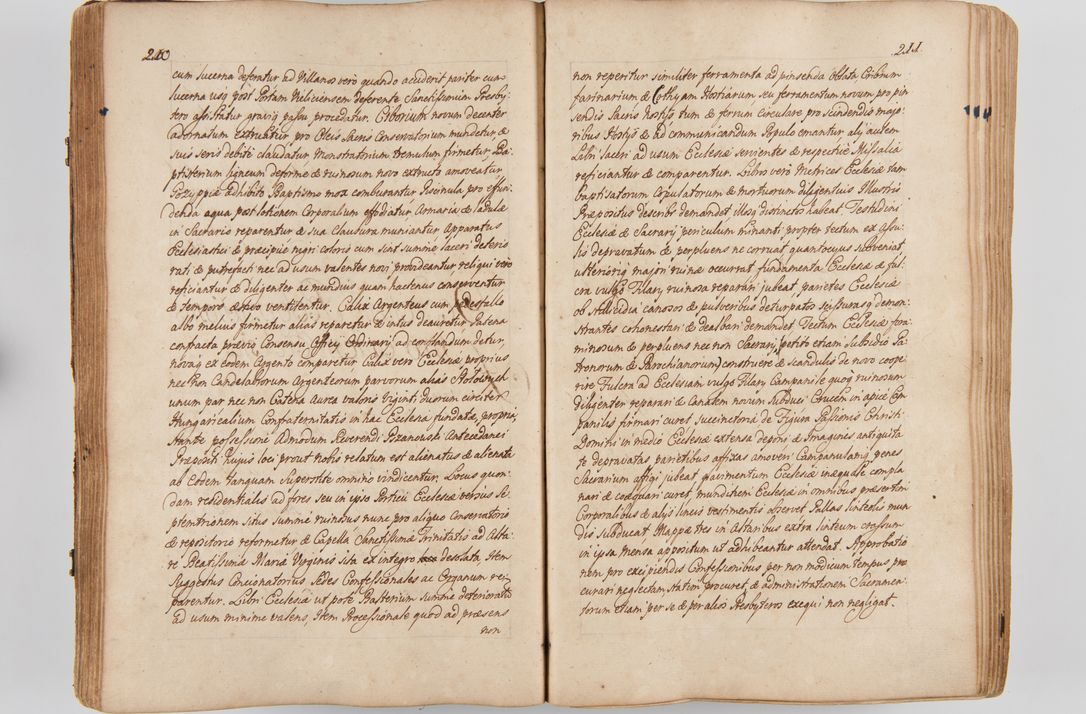 210
cum lucerna deferatur ad Villanos vero quando acciderit pariter cum
lucerna usq post Portam Vieliciensem deferente Sanctissimum Presby-
tero asportatur gravi passu procedatur. Ciborium novum decenter
adornatum extruatur, pro Oleis Sacris Conservatorium mundetur &
suis seris debite claudatur Monstratorium tremulum firmetur, Ba-
ptisterium ligneum deforme & ruinosum novo extructo amoveatur
adhibito Baptismo mox comburantur Piscinula pro effun-
denda aqua post lotionem Corporalium effodiatur Armaria & ladulæ
in Sacrario reparentur & sua Clausura muniantur Apparatus
Ecclesiastici & præcipue nigri coloris cum sint summe laceri deterio
rati & putrefacti nec ad usum valentes novi provideantur reliqui vero
reficiantur & diligenter ac mundius quam hactenus conserventur
& tempore æstivo ventilentur. Calix Argenteus cum
albo melius firmetur alias reparetur & intus deauretur Patena
confracta prævio Consensu Officij Ordinarij ad conflandum detur,
novaq ex eodem Argento comparetur Calix vero Ecclesiæ proprius
nec non Candelabrorum Argenteorum parvorum alias
unum par nec non Catena Aurea valoris Viginti duorum circiter
Hungaricalium Confraternitatis in hac Ecclesia fundatæ, propria,
stante possessione Admodum Reverendi Antecedanei
Præpositi hujus loci prout nobis relatum est alienatus & alienata
ab Eodem tanquam Superstite omnino vindicentur. Locus quon-
dam residentialis ad fores seu in ipso Porticu Ecclesiæ versus Se-
ptemtrionem situs summe ruinosus nunc pro aliquo Conservatorio
& repositorio reformetur & Capella Sanctissimæ Trinitatis ad Alta-
re Beatissimæ Mariæ Virginis sita ex integro desolata, Item
Suggestus Concionatorius Sedes Confessionales ac Organum re-
parentur. Libri Ecclesiæ ut pote Psalterium summe deterioratum
ad usum minime valens, Item Processionale quod ad præsens
non
211
non reperitur similiter ferramenta ad pinsenda Oblata, Cribrum
farinarium & Hostiarum, seu ferramentum novum pro pin
sendis Sacris Hostijs tum & ferrum circulare pro scindendis majo-
ribus Hostijs & ad communicandum Populo emantur, alij autem
Libri sacri ad usum Ecclesiæ servientes & respective Missalia
reficiantur & comparentur. Libros vero Metrices Ecclesiæ tam
baptisatorum Copulatorum & mortuorum diligentius Illustris
Præpositus describi demandet illosq distinctos habeat. Testudini
Ecclesiæ & Sacrarij periculum minanti propter tectum ex assu-
lis depravatum & perpluens ne corruat quantocyus subveniat
ulteriorig majori ruinæ occurrat fundamenta Ecclesiæ & ful-
cra vulgo Filary, ruinosa reparari jubeat, parietes Ecclesiæ
ob stillicidia canosos & pulveribus deturpatos scissurasq demon-
strantes cohonestari & dealbari demandet. Tectum Ecclesiæ fora-
minosum & perpluens nec non Sacrarij, petito etiam subsidio Pa-
tronorum & Parochianorum construere & scandulis de novo coope-
rire Fulcra ad Ecclesiam vulgo Filary Campanile quoq ruinosum
diligenter reparari & Canalem novum subduci Crucem in apice Cam
panilis firmari curet succinctoria de Figura Passionis Christi
Domini in medio Ecclesiæ extensa deponi & Imagines antiquita-
te depravatas parietibus affixas amoveri Campanulamq penes
Sacrarium affigi jubeat pavimentum Ecclesiæ inæquale compla
nari & coæquari curet munditiem Ecclesiæ in omnibus præsertim
Corporalibus & alijs lineis vestimentis observet Pallas linteolis mun
dis subducat Mappæ tres in Altaribus extra linteum cressum
in ipsa Mensa appositum ut adhibeantur attendat. Approbatio
nem pro excipiendis Confessionibus per non modicum tempus pro
curari neglectam statim procuret & administrationem Sacramen-
torum etiam per se & per alios Presbyteros exequi non negligat.